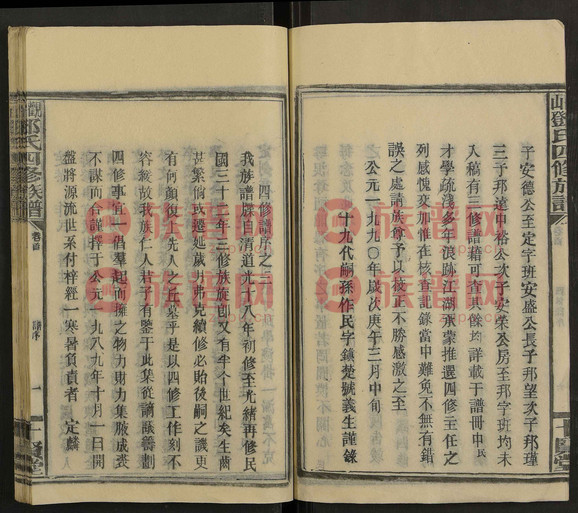 子安德公至定字班安盛公長子邦望次子邦瑾
三子邦道申裕公次子安榮公房至邦字班均未
入稿有三修譜藉可查其餘均詳載于譜冊中民
才學疏淺歷年浪跡江湖承蒙推選四修主任之
列感愧交加惟在核查記錄當中難免不無有錯
誤之處請族尊予以校正不勝感激之至
公元一九九〇年歲次庚午三月中旬
十九代嗣孫作民字鎮楚號義生謹錄
四修譜序之二
我族譜牒自清道光十八年初修至光緒再修民
國三十二年三修族旋即又有半个世紀矣生齒
甚繁倘或遷延歲月弗克續修必貽後嗣之譏更
有何顏復上先人之丘墓乎是以四修工作刻不
容緩故我族仁人君子有鑒于此集從謫猷籌劃
四修事宜一倡羣起而擁之物力財力集腋成裘
不謀而合詳擇于公元一九八九年十月一日開
盤將源流世系付梓經一寒暑負責者 定麟
鄧氏四修族譜
卷首
譜序
一
鄧氏四修族譜
卷首
族譜网
族譜网